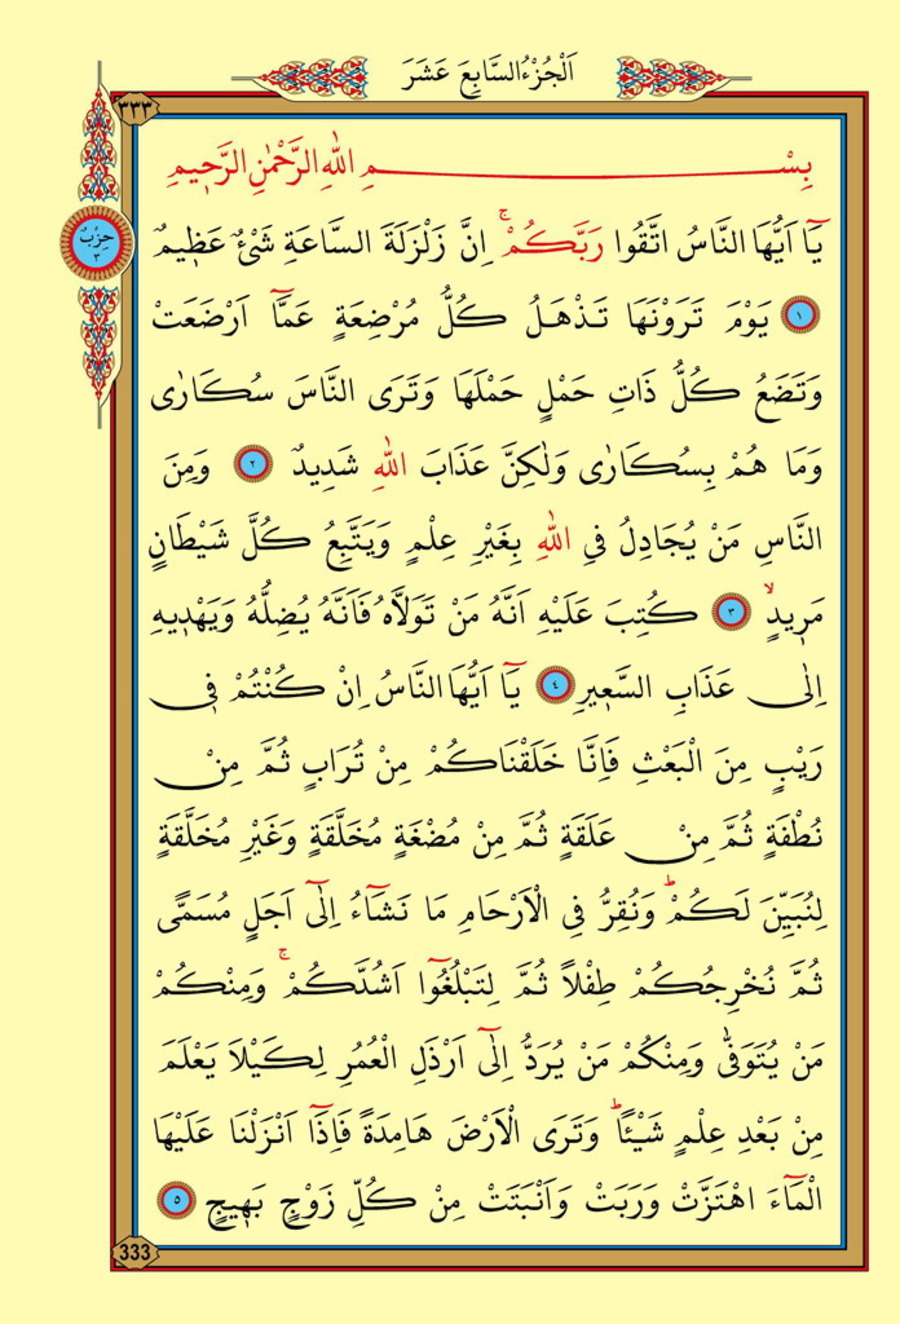 اَلْجُزْءُ السَّابِعَ عَشَرَ
٣٣٣
حِزْبٌ
٣
بِسْمِ اللّٰهِ الرَّحْمٰنِ الرَّحٖيمِ
يَٓا اَيُّهَا النَّاسُ اتَّقُوا رَبَّكُمْۚ اِنَّ زَلْزَلَةَ السَّاعَةِ شَيْءٌ عَظٖيمٌ
١ يَوْمَ تَرَوْنَهَا تَذْهَلُ كُلُّ مُرْضِعَةٍ عَمَّٓا اَرْضَعَتْ
وَتَضَعُ كُلُّ ذَاتِ حَمْلٍ حَمْلَهَا وَتَرَى النَّاسَ سُكَارٰى
وَمَا هُمْ بِسُكَارٰى وَلٰكِنَّ عَذَابَ اللّٰهِ شَدٖيدٌ ٢ وَمِنَ
النَّاسِ مَنْ يُجَادِلُ فِي اللّٰهِ بِغَيْرِ عِلْمٍ وَيَتَّبِعُ كُلَّ شَيْطَانٍ
مَرٖيدٍۙ ٣ كُتِبَ عَلَيْهِ اَنَّهُ مَنْ تَوَلَّاهُ فَاَنَّهُ يُضِلُّهُ وَيَهْدٖيهِ
اِلٰى عَذَابِ السَّعٖيرِ ٤ يَٓا اَيُّهَا النَّاسُ اِنْ كُنْتُمْ فٖي
رَيْبٍ مِنَ الْبَعْثِ فَاِنَّا خَلَقْنَاكُمْ مِنْ تُرَابٍ ثُمَّ مِنْ
نُطْفَةٍ ثُمَّ مِنْ عَلَقَةٍ ثُمَّ مِنْ مُضْغَةٍ مُخَلَّقَةٍ وَغَيْرِ مُخَلَّقَةٍ
لِنُبَيِّنَ لَكُمْؕ وَنُقِرُّ فِي الْاَرْحَامِ مَا نَشَٓاءُ اِلٰٓى اَجَلٍ مُسَمًّى
ثُمَّ نُخْرِجُكُمْ طِفْلاً ثُمَّ لِتَبْلُغُٓوا اَشُدَّكُمْۚ وَمِنْكُمْ
مَنْ يُتَوَفّٰى وَمِنْكُمْ مَنْ يُرَدُّ اِلٰٓى اَرْذَلِ الْعُمُرِ لِكَيْلَا يَعْلَمَ
مِنْ بَعْدِ عِلْمٍ شَيْـًٔاؕ وَتَرَى الْاَرْضَ هَامِدَةً فَاِذَٓا اَنْزَلْنَا عَلَيْهَا
الْمَٓاءَ اهْتَزَّتْ وَرَبَتْ وَاَنْبَتَتْ مِنْ كُلِّ زَوْجٍ بَهٖيجٍ ٥
333